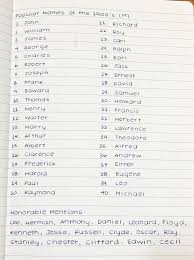 Popular Names of the 1900's (M)
1. John 21. Richard
2. William 22. Roy
3. James 23. Carl
4. George 24. Ralph
5. Charles 25. Earl
6. Robert 26. Jack
7. Joseph 27. Ernest
8. Frank 28. David
9. Edward 29. Samuel
10. Thomas 30. Howard
11. Henry 31. Francis
12. Walter 32. Herbert
13. Harry 33. Lawrence
14. Arthur 34. Theodore
15. Albert 35. Alfred
16. Clarence 36. Andrew
17. Frederick 37. Elmer
18. Harold 38. Eugene
19. Paul 39. Leo
20. Raymond 40. Michael
Honorable Mentions:
Lee, Herman, Anthony, Daniel, Leonard, Floyd,
Kenneth, Jesse, Russell, Clyde, Oscar, Ray,
Stanley, Chester, Clifford, Edwin, Cecil